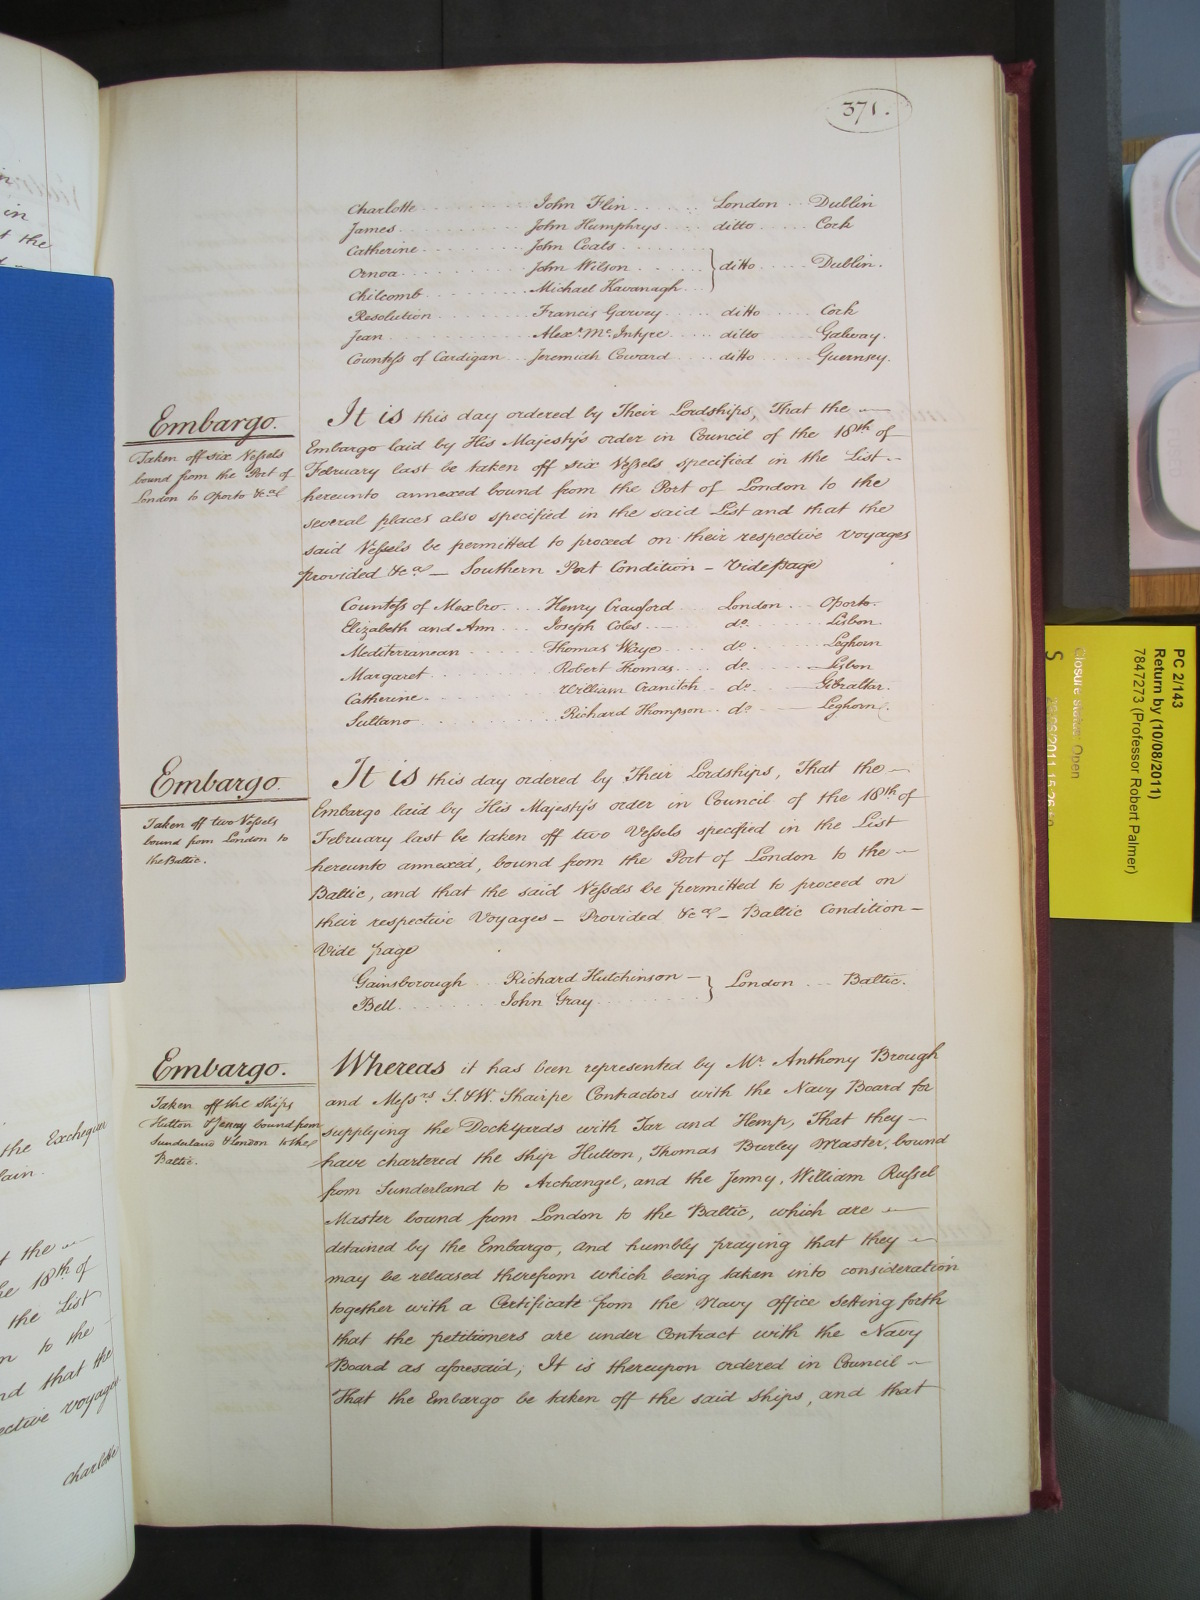 371.
Charlotte John Flin London Dublin
James John Humphrys ditto Cork
Catherine John Coats
Ornoa John Wilson ditto Dublin.
Chilcomb Michael Kavanagh
Resolution Francis Garvey ditto Cork
Jean Alexr. Mc.Intyre ditto Galway.
Countess of Cardigan Jeremiah Coward ditto Guernsey.
Embargo.
Taken off six Vessels
bound from the Port of
London to Oporto &ca.
It is this day ordered by Their Lordships, That the
Embargo laid by His Majesty's order in Council of the 18th of
February last be taken off six Vessels specified in the List
hereunto annexed bound from the Port of London to the
several places also specified in the said List and that the
said Vessels be permitted to proceed on their respective Voyages
provided &ca — Southern Port Condition — Vide page
Countess of Mexbro Henry Crawford London Oporto.
Elizabeth and Ann Joseph Coles do. Lisbon.
Mediterranean Thomas Waye do. Leghorn
Margaret Robert Thomas do. Lisbon
Catherine William Cranitch do. Gibraltar.
Sultano Richard Thompson do. Leghorn
Embargo.
Taken off two Vessels
bound from London to
the Baltic.
It is this day ordered by Their Lordships, That the —
Embargo laid by His Majesty's order in Council of the 18th of
February last be taken off two Vessels specified in the List
hereunto annexed, bound from the Port of London to the —
Baltic, and that the said Vessels be permitted to proceed on
their respective Voyages — Provided &ca — Baltic Condition —
Vide page
Gainsborough Richard Hutchinson London Baltic.
Bell John Gray
Embargo.
Taken off the Ships
Hutton & Jenny bound from
Sunderland & London to the
Baltic.
Whereas it has been represented by Mr. Anthony Brough
and Messrs S. & W. Thairpe Contractors with the Navy Board for
supplying the Dockyards with Tar and Hemp, That they —
have chartered the Ship Hutton, Thomas Burley Master, bound
from Sunderland to Archangel, and the Jenny, William Russel
Master bound from London to the Baltic, which are —
detained by the Embargo, and humbly praying that they —
may be released therefrom which being taken into consideration
together with a Certificate from the Navy office setting forth
that the petitioners are under Contract with the Navy
Board as aforesaid; It is thereupon ordered in Council —
That the Embargo be taken off the said Ships, and that
in
t the
the Exchequer
t the
he 18th of
the List
to the
nd that the
ective Voyages
Charlotte
PC 2/143
Return by (10/08/2011)
7847273 (Professor Robert Palmer)
Closure status: Open
S